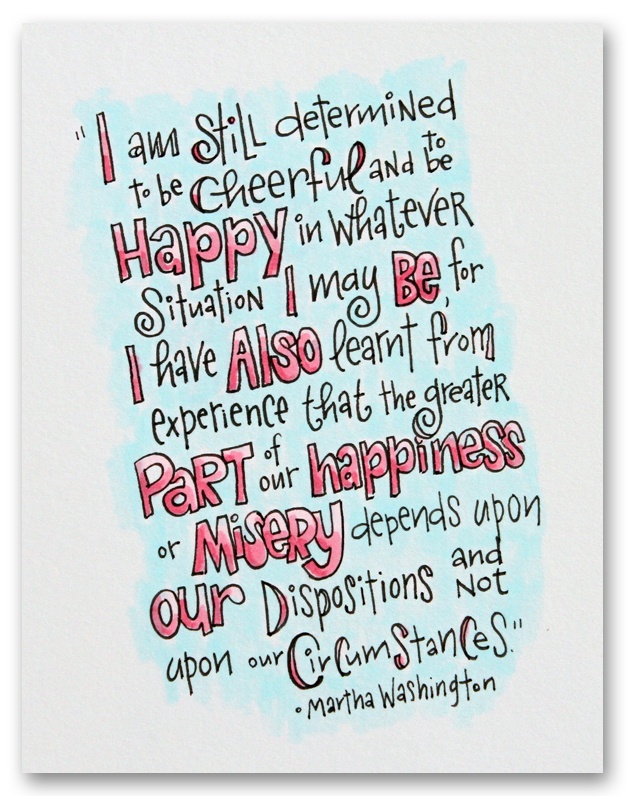 "I am Still determined
to be Cheerful and to be
Happy in Whatever
Situation I may Be, for
I have Also learnt from
experience that the greater
Part of our happiness
or Misery depends upon
our Dispositions and Not
upon our Circumstances."
• Martha Washington